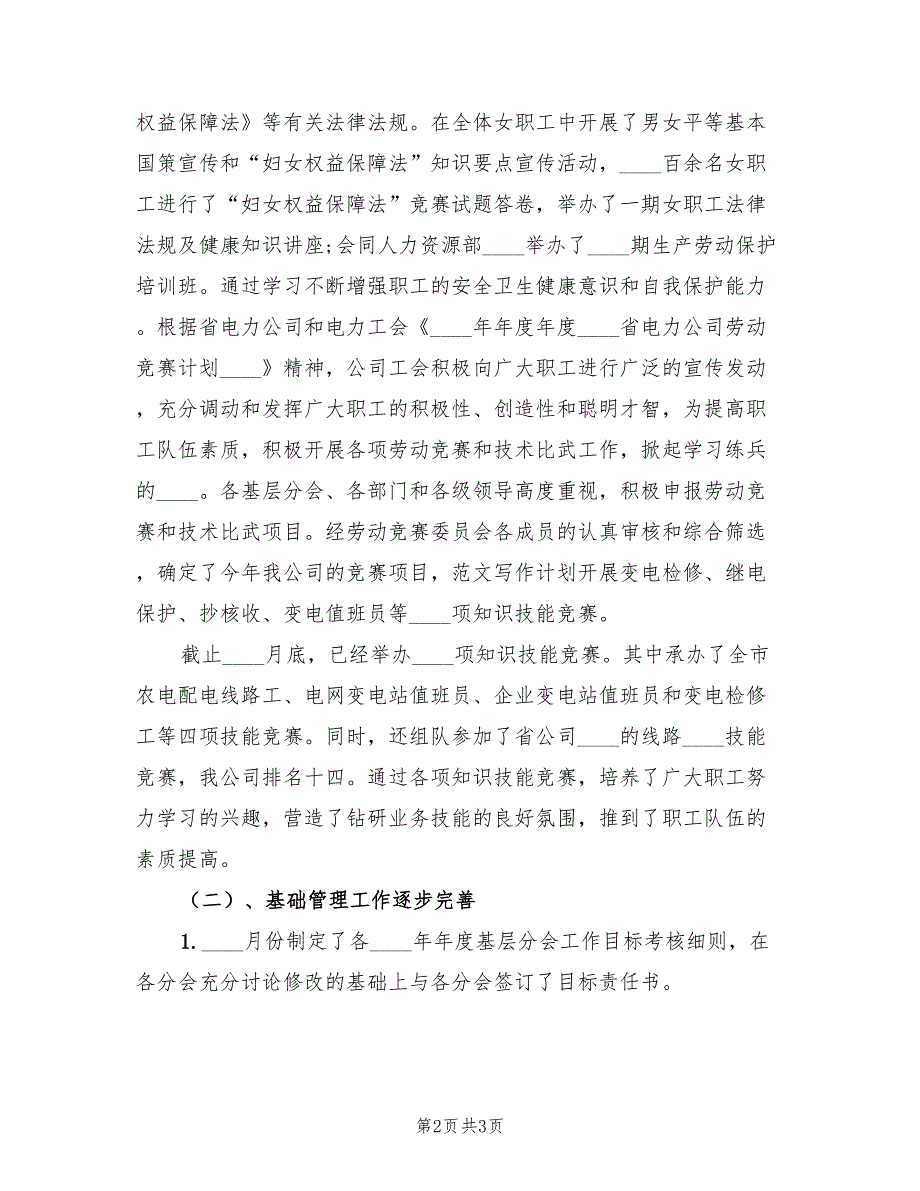 权益保障法》等有关法律法规。在全体女职工中开展了男女平等基本
国策宣传和“妇女权益保障法”知识要点宣传活动，____百余名女职
工进行了“妇女权益保障法”竞赛试题答卷，举办了一期女职工法律
法规及健康知识讲座;会同人力资源部____举办了____期生产劳动保护
培训班。通过学习不断增强职工的安全卫生健康意识和自我保护能力
。根据省电力公司和电力工会《____年年度年度____省电力公司劳动
竞赛计划____》精神，公司工会积极向广大职工进行广泛的宣传发动
，充分调动和发挥广大职工的积极性、创造性和聪明才智，为提高职
工队伍素质，积极开展各项劳动竞赛和技术比武工作，掀起学习练兵
的____。各基层分会、各部门和各级领导高度重视，积极申报劳动竞
赛和技术比武项目。经劳动竞赛委员会各成员的认真审核和综合筛选
，确定了今年我公司的竞赛项目，范文写作计划开展变电检修、继电
保护、抄核收、变电值班员等____项知识技能竞赛。
截止____月底，已经举办____项知识技能竞赛。其中承办了全市
农电配电线路工、电网变电站值班员、企业变电站值班员和变电检修
工等四项技能竞赛。同时，还组队参加了省公司____的线路____技能
竞赛，我公司排名十四。通过各项知识技能竞赛，培养了广大职工努
力学习的兴趣，营造了钻研业务技能的良好氛围，推到了职工队伍的
素质提高。
（二）、基础管理工作逐步完善
1.____月份制定了各____年年度基层分会工作目标考核细则，在
各分会充分讨论修改的基础上与各分会签订了目标责任书。
第2页 共3页